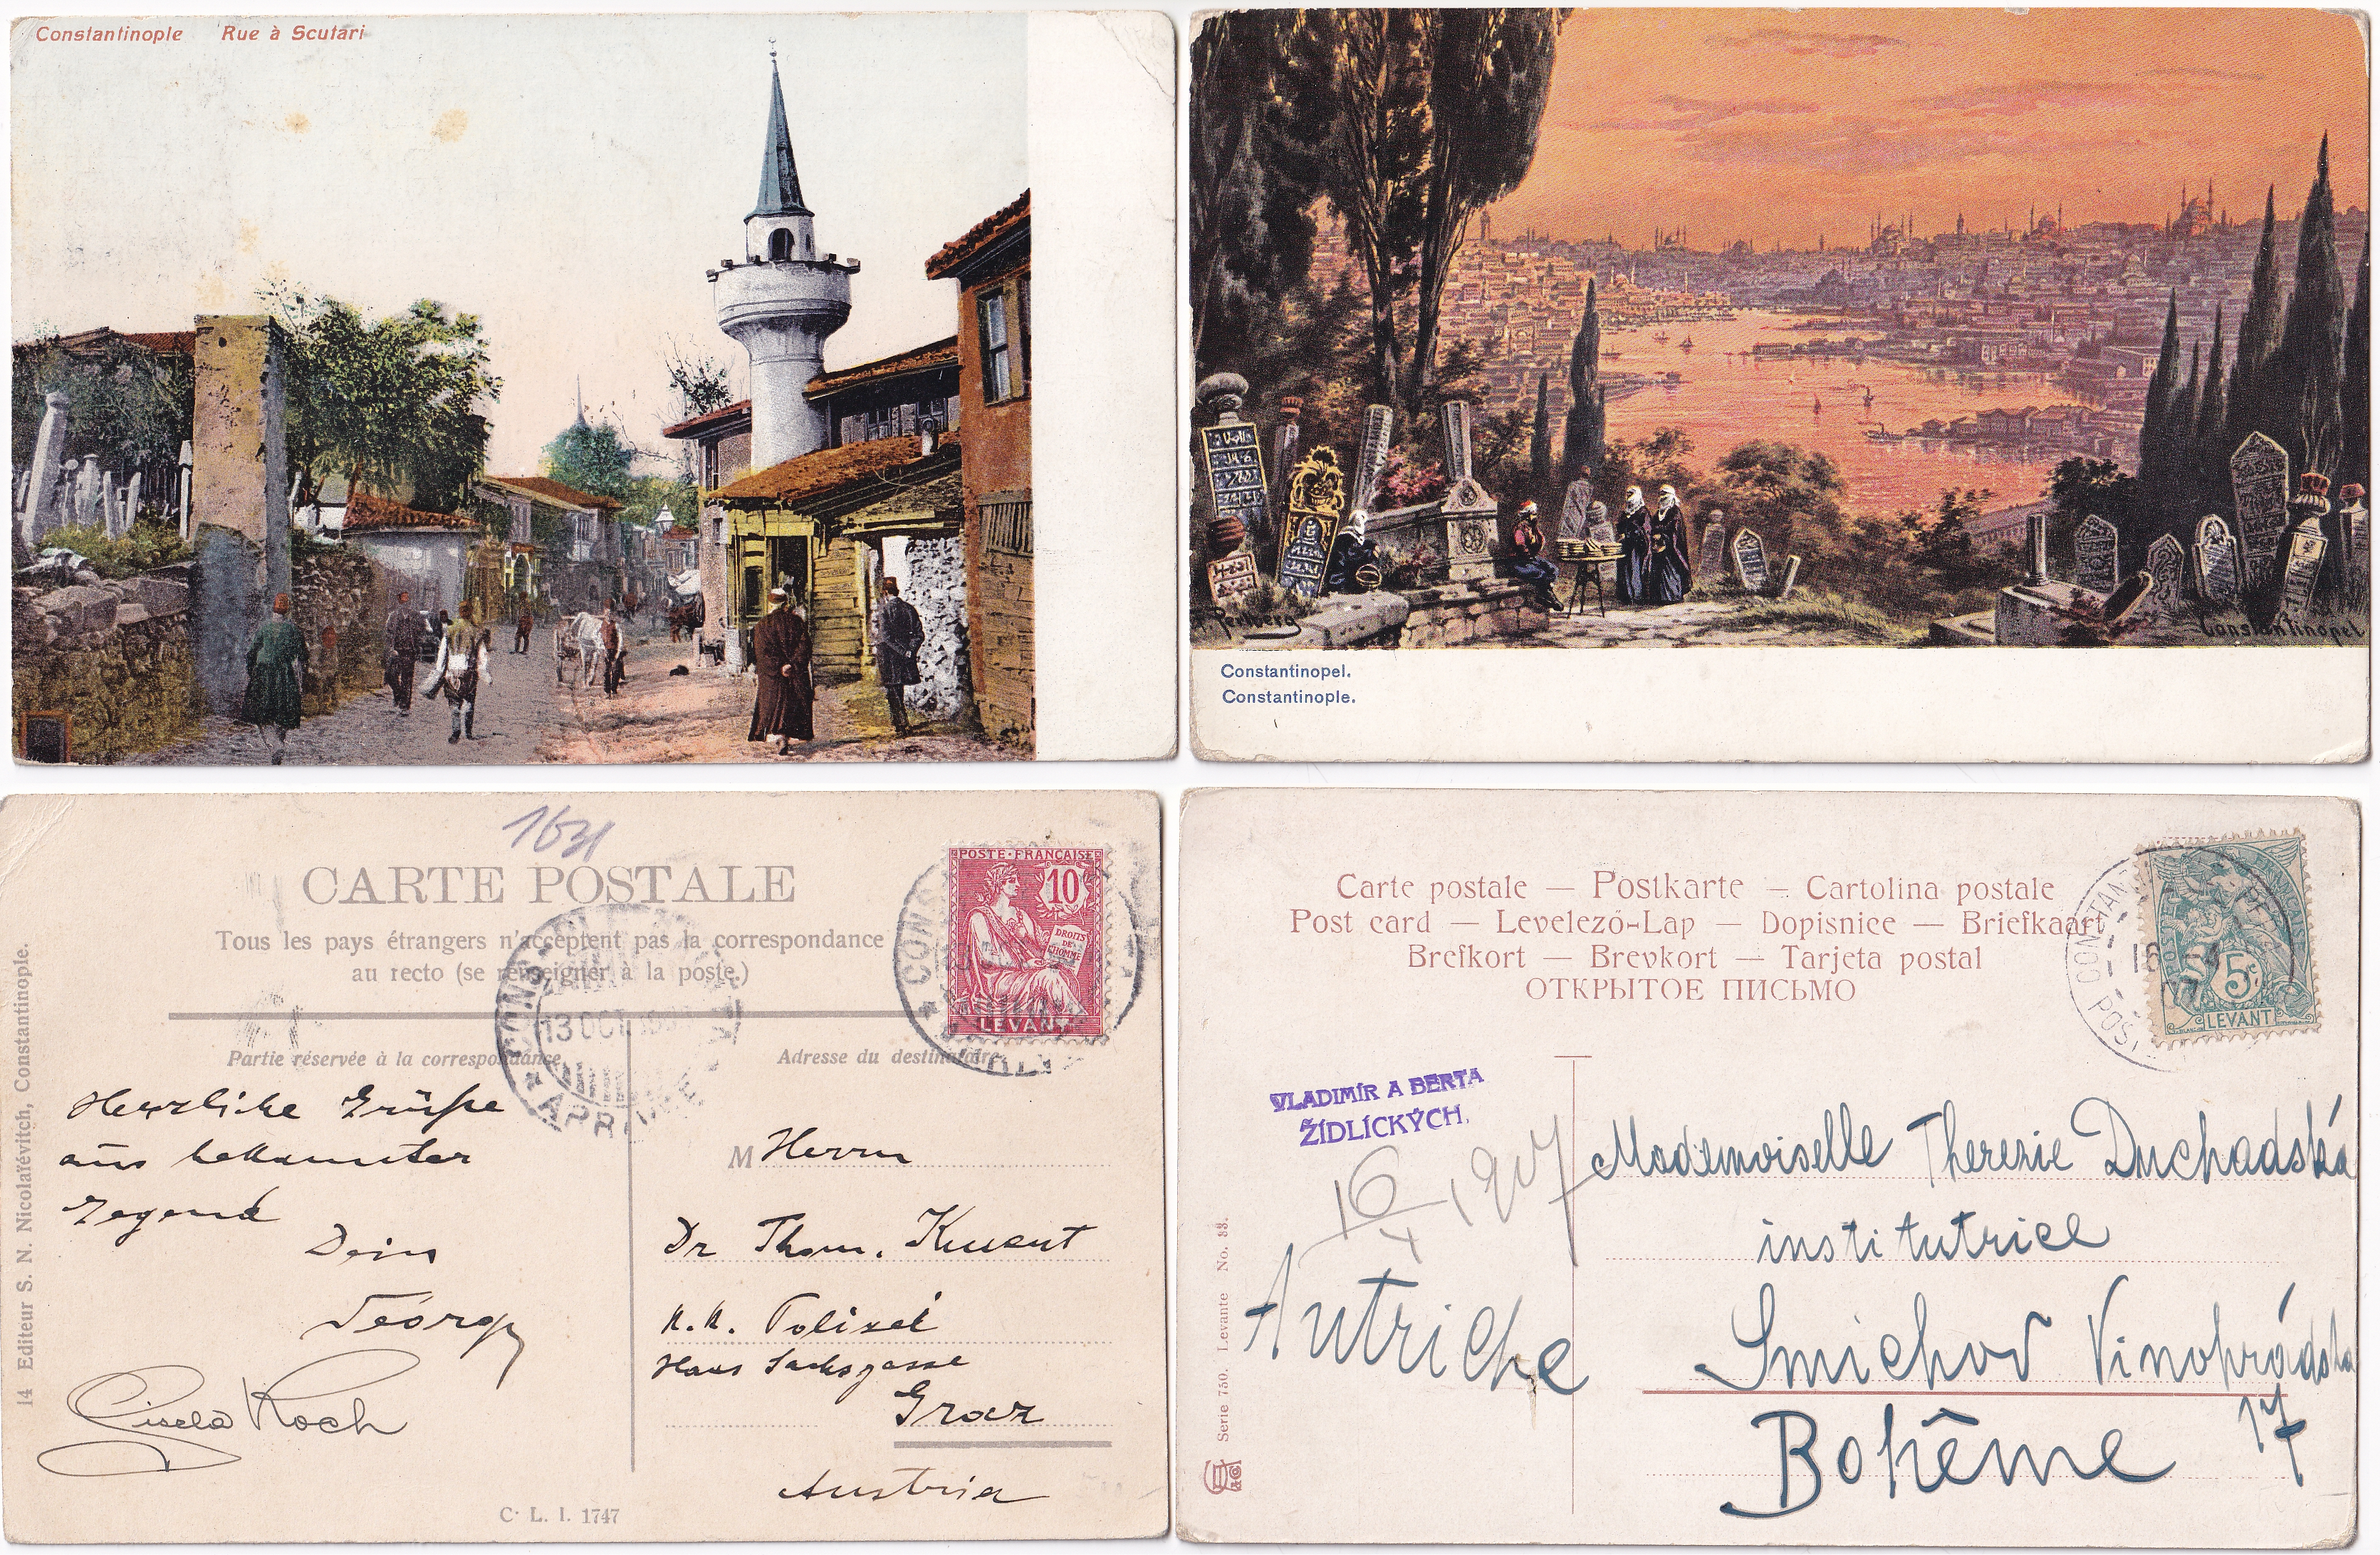 Constantinople Rue à Scutari
Perlberg
Constantinopel
Constantinopel.
Constantinople.
1631
CARTE POSTALE
Tous les pays étrangers n'acceptent pas la correspondance
au recto (se renseigner à la poste.)
Partie réservée à la correspondance
Adresse du destinataire
POSTE FRANÇAISE
10
DROITS
DE
L'HOMME
LEVANT
13 OCT
14 Editeur S. N. Nicolaïévitch, Constantinople.
Herzliche Grüße
aus bekannter
Gegend
Dein
Georg
Gisela Koch
M Herrn
Dr Thom.
K.K. Polizei
Hans Sachsgasse
Graz
Austria
C. L. I. 1747
Carte postale — Postkarte — Cartolina postale
Post card — Levelező-Lap — Dopisnice — Briefkaart
Brefkort — Brevkort — Tarjeta postal
ОТКРЫТОЕ ПИСЬМО
5c
LEVANT
VLADIMÍR A BERTA
ŽIDLÍCKÝCH.
16/4 1907
Autriche
Mademoiselle Therezie Duchadská
institutrice
Smichov Vinohradska
17
Bohême
Serie 750. Levante No. 33.